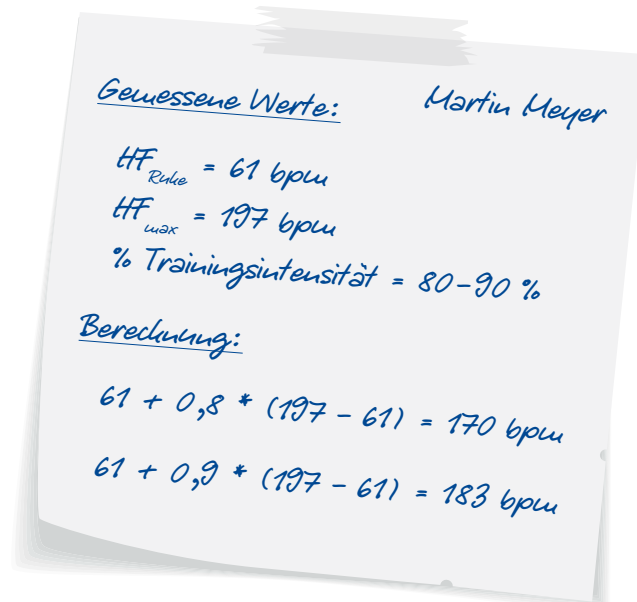 Gemessene Werte: Martin Meyer
HF Ruhe = 61 bpm
HF max = 197 bpm
% Trainingsintensität = 80-90 %
Berechnung:
61 + 0,8 * (197 - 61) = 170 bpm
61 + 0,9 * (197 - 61) = 183 bpm